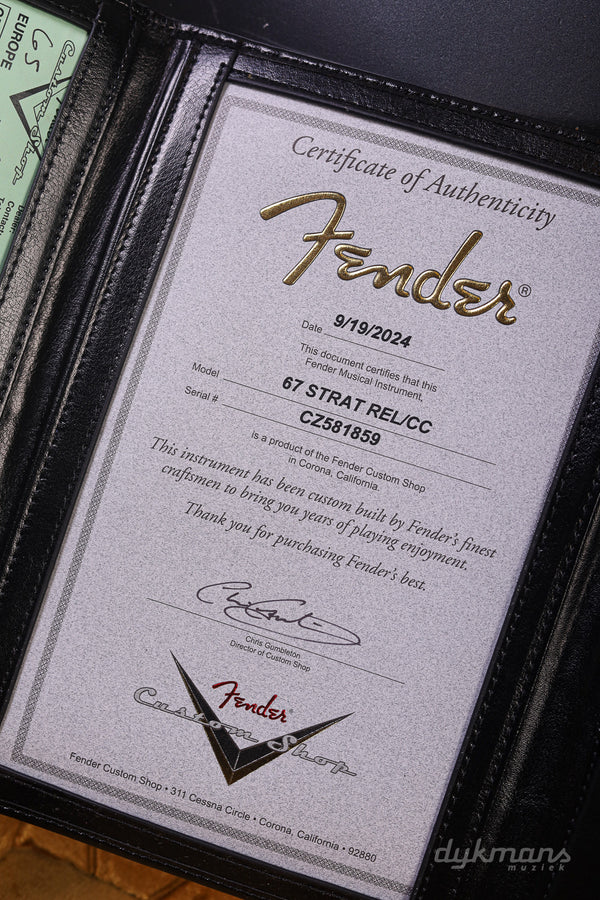 EUROPE
65
Custom Shop
Contact:
Certificate of Authenticity
Fender®
Date 9/19/2024
This document certifies that this
Fender Musical Instrument,
Model 67 STRAT REL/CC
Serial # CZ581859
is a product of the Fender Custom Shop
in Corona, California.
This instrument has been custom built by Fender's finest
craftsmen to bring you years of playing enjoyment.
Thank you for purchasing Fender's best.
Chris Gumbleton
Director of Custom Shop
Fender®
Custom Shop
Fender Custom Shop • 311 Cessna Circle • Corona, California • 92880
dykmans
muziek